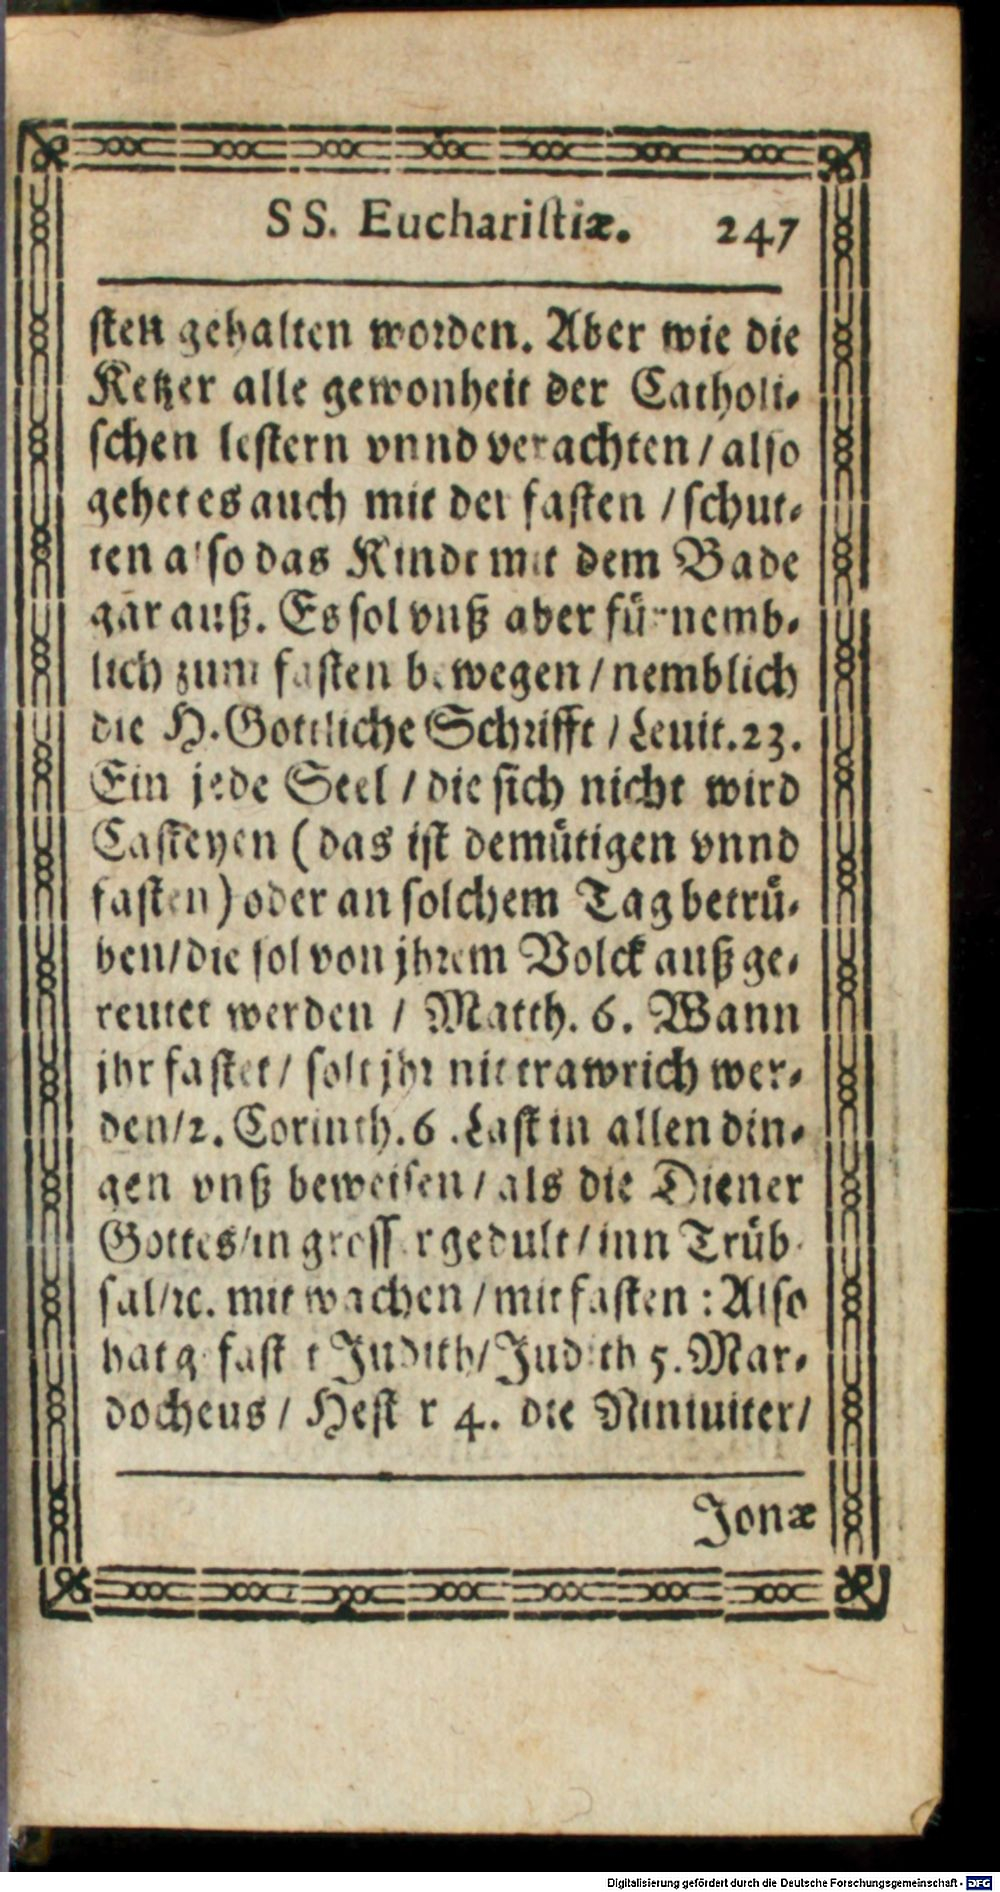 SS. Euchariſtiæ. 247
ſten gehalten worden. Aber wie die
Ketzer alle gewonheit der Catholi-
ſchen leſtern vnnd verachten / alſo
gehet es auch mit der faſten / ſchut-
ten alſo das Kindt mit dem Bade
gar auß. Es ſol vnß aber fürnemb-
lich zum faſten bewegen / nemblich
die H. Göttliche Schrifft / Leuit. 23.
Ein jede Seel / die ſich nicht wird
Caſteyen (das iſt demütigen vnnd
faſten) oder an ſolchem Tag betrü-
ben / die ſol von jhrem Volck außge-
reutet werden / Matth. 6. Wann
jhr faſtet / ſolt jhr nit trawrich wer-
den / 2. Corinth. 6. Laſt in allen din-
gen vnß beweiſen / als die Diener
Gottes / in groſſer gedult / inn Trüb-
ſal / ꝛc. mit wachen / mit faſten : Alſo
hat gefaſtet Judith / Judith 5. Mar-
docheus / Heſter 4. die Niniuiter /
Jonæ
Digitalisierung gefördert durch die Deutsche Forschungsgemeinschaft - DFG